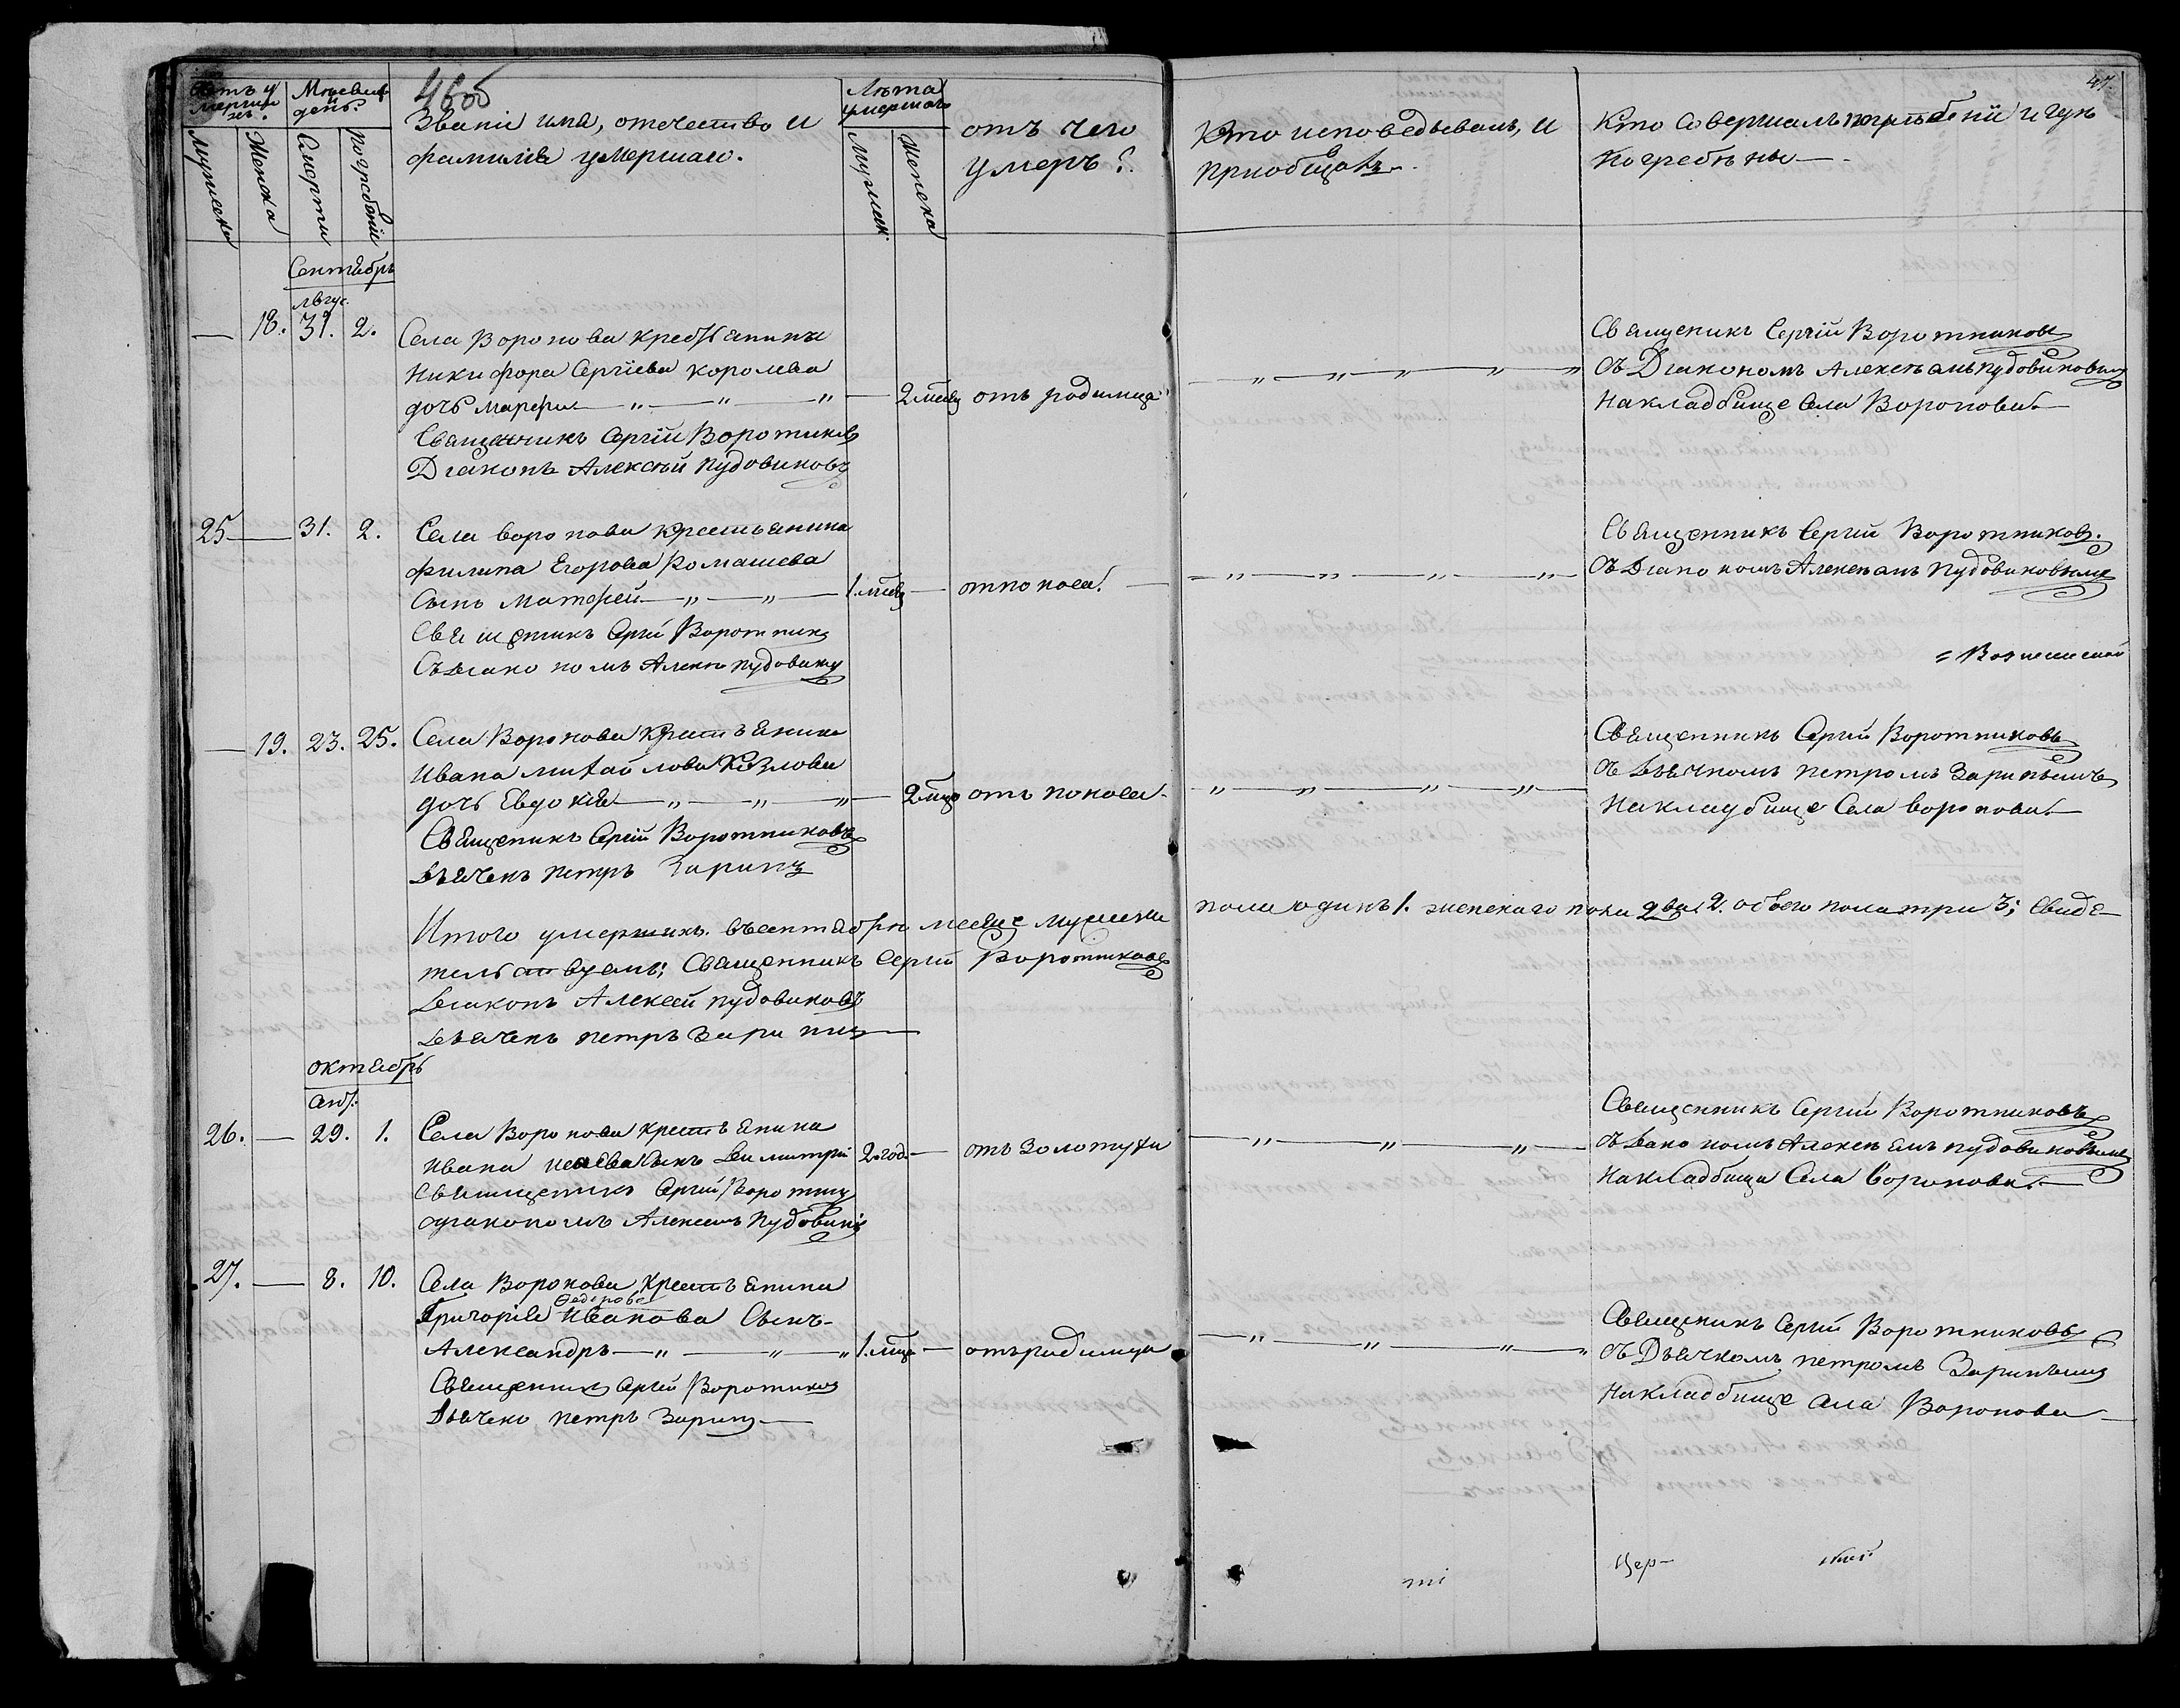 46об
47.
Счетъ умершихъ.
Мѣсяцъ и день.
Званіе имя, отечество и
фамилія умершаго.
Лѣта умершаго
отъ чего
умеръ?
Кто исповѣдывалъ, и
приобщалъ.
Кто совершалъ погребеніе и гдѣ
погребены
Мужеска
Женска
Смерти
Погребенія
Мужеск.
Женска
Сентябрь
Авгус.
— 18. 31. 2.
Села Воронова крестьянина
Никифора Сергіева Королева
дочь Марфа — „ — „ — „ — 2 мсц отъ родимца — „ — „ — „ — „ — „
Священникъ Сергій Воротников
Діаконъ Алексѣй Пудовиковъ
Священикъ Сергій Воротников
съ Діакономъ Алексѣемъ Пудовиковымъ
на кладбище Села Воронова
25 — 31. 2.
Села Воронова крестьянина
Филипа Егорова Ромашева
Сынъ Матфей — „ — „ — 1. мсц — от поноса. — „ — „ — „ — „ —
Священикъ Сергій Воротник
Съ Діакономъ Алексѣ Пудовику
Священникъ Сергій Воротников.
Съ Діакономъ Алексѣемъ Пудовиковымъ
— 19. 23. 25.
Села Воронова Крестьянина
Ивана Михайлова Козлова
дочь Евдокія — „ — „ — „ — 2 мца отъ поноса — „ — „ — „ — „ —
Священикъ Сергій Воротниковъ
Дьячекъ Петръ Заринъ
Священникъ Сергій Воротниковъ
съ Дьячкомъ Петромъ Заринымъ
На кладбище Села Воронова.
Итого умершихъ въ сентябрѣ месяце мужеска пола одинъ 1. женскаго пола два 2. обоего пола три 3; Свидѣ-
тельствуемъ: Священникъ Сергій Воротников
Діаконъ Алексей Пудовиковъ
Дьячекъ Петръ Заринъ
Октябрь
Сент.
26. — 29. 1.
Села Воронова крестьянина
Ивана Исаева Сынъ Димитрій 2. год. — отъ Золотухи — „ — „ — „ —
Священникъ Сергій Воротник
с діакономъ Алексеемъ Пудовик
Священникъ Сергій Воротниковъ
съ Діакономъ Алексѣемъ Пудовиковымъ
На кладбища Села Воронова.
27. — 8. 10.
Села Воронова Крестьянина
Федорова
Григорія Иванова Сынъ
Александръ — „ — „ — „ 1. мца — отъ родимца — „ — „ — „ — „
Священикъ Сергій Воротников
Дьячекъ Петръ Заринъ
Священикъ Сергій Воротниковъ
съ Дьячкомъ Петромъ Заринымъ
На кладбище Села Воронова
Цер-